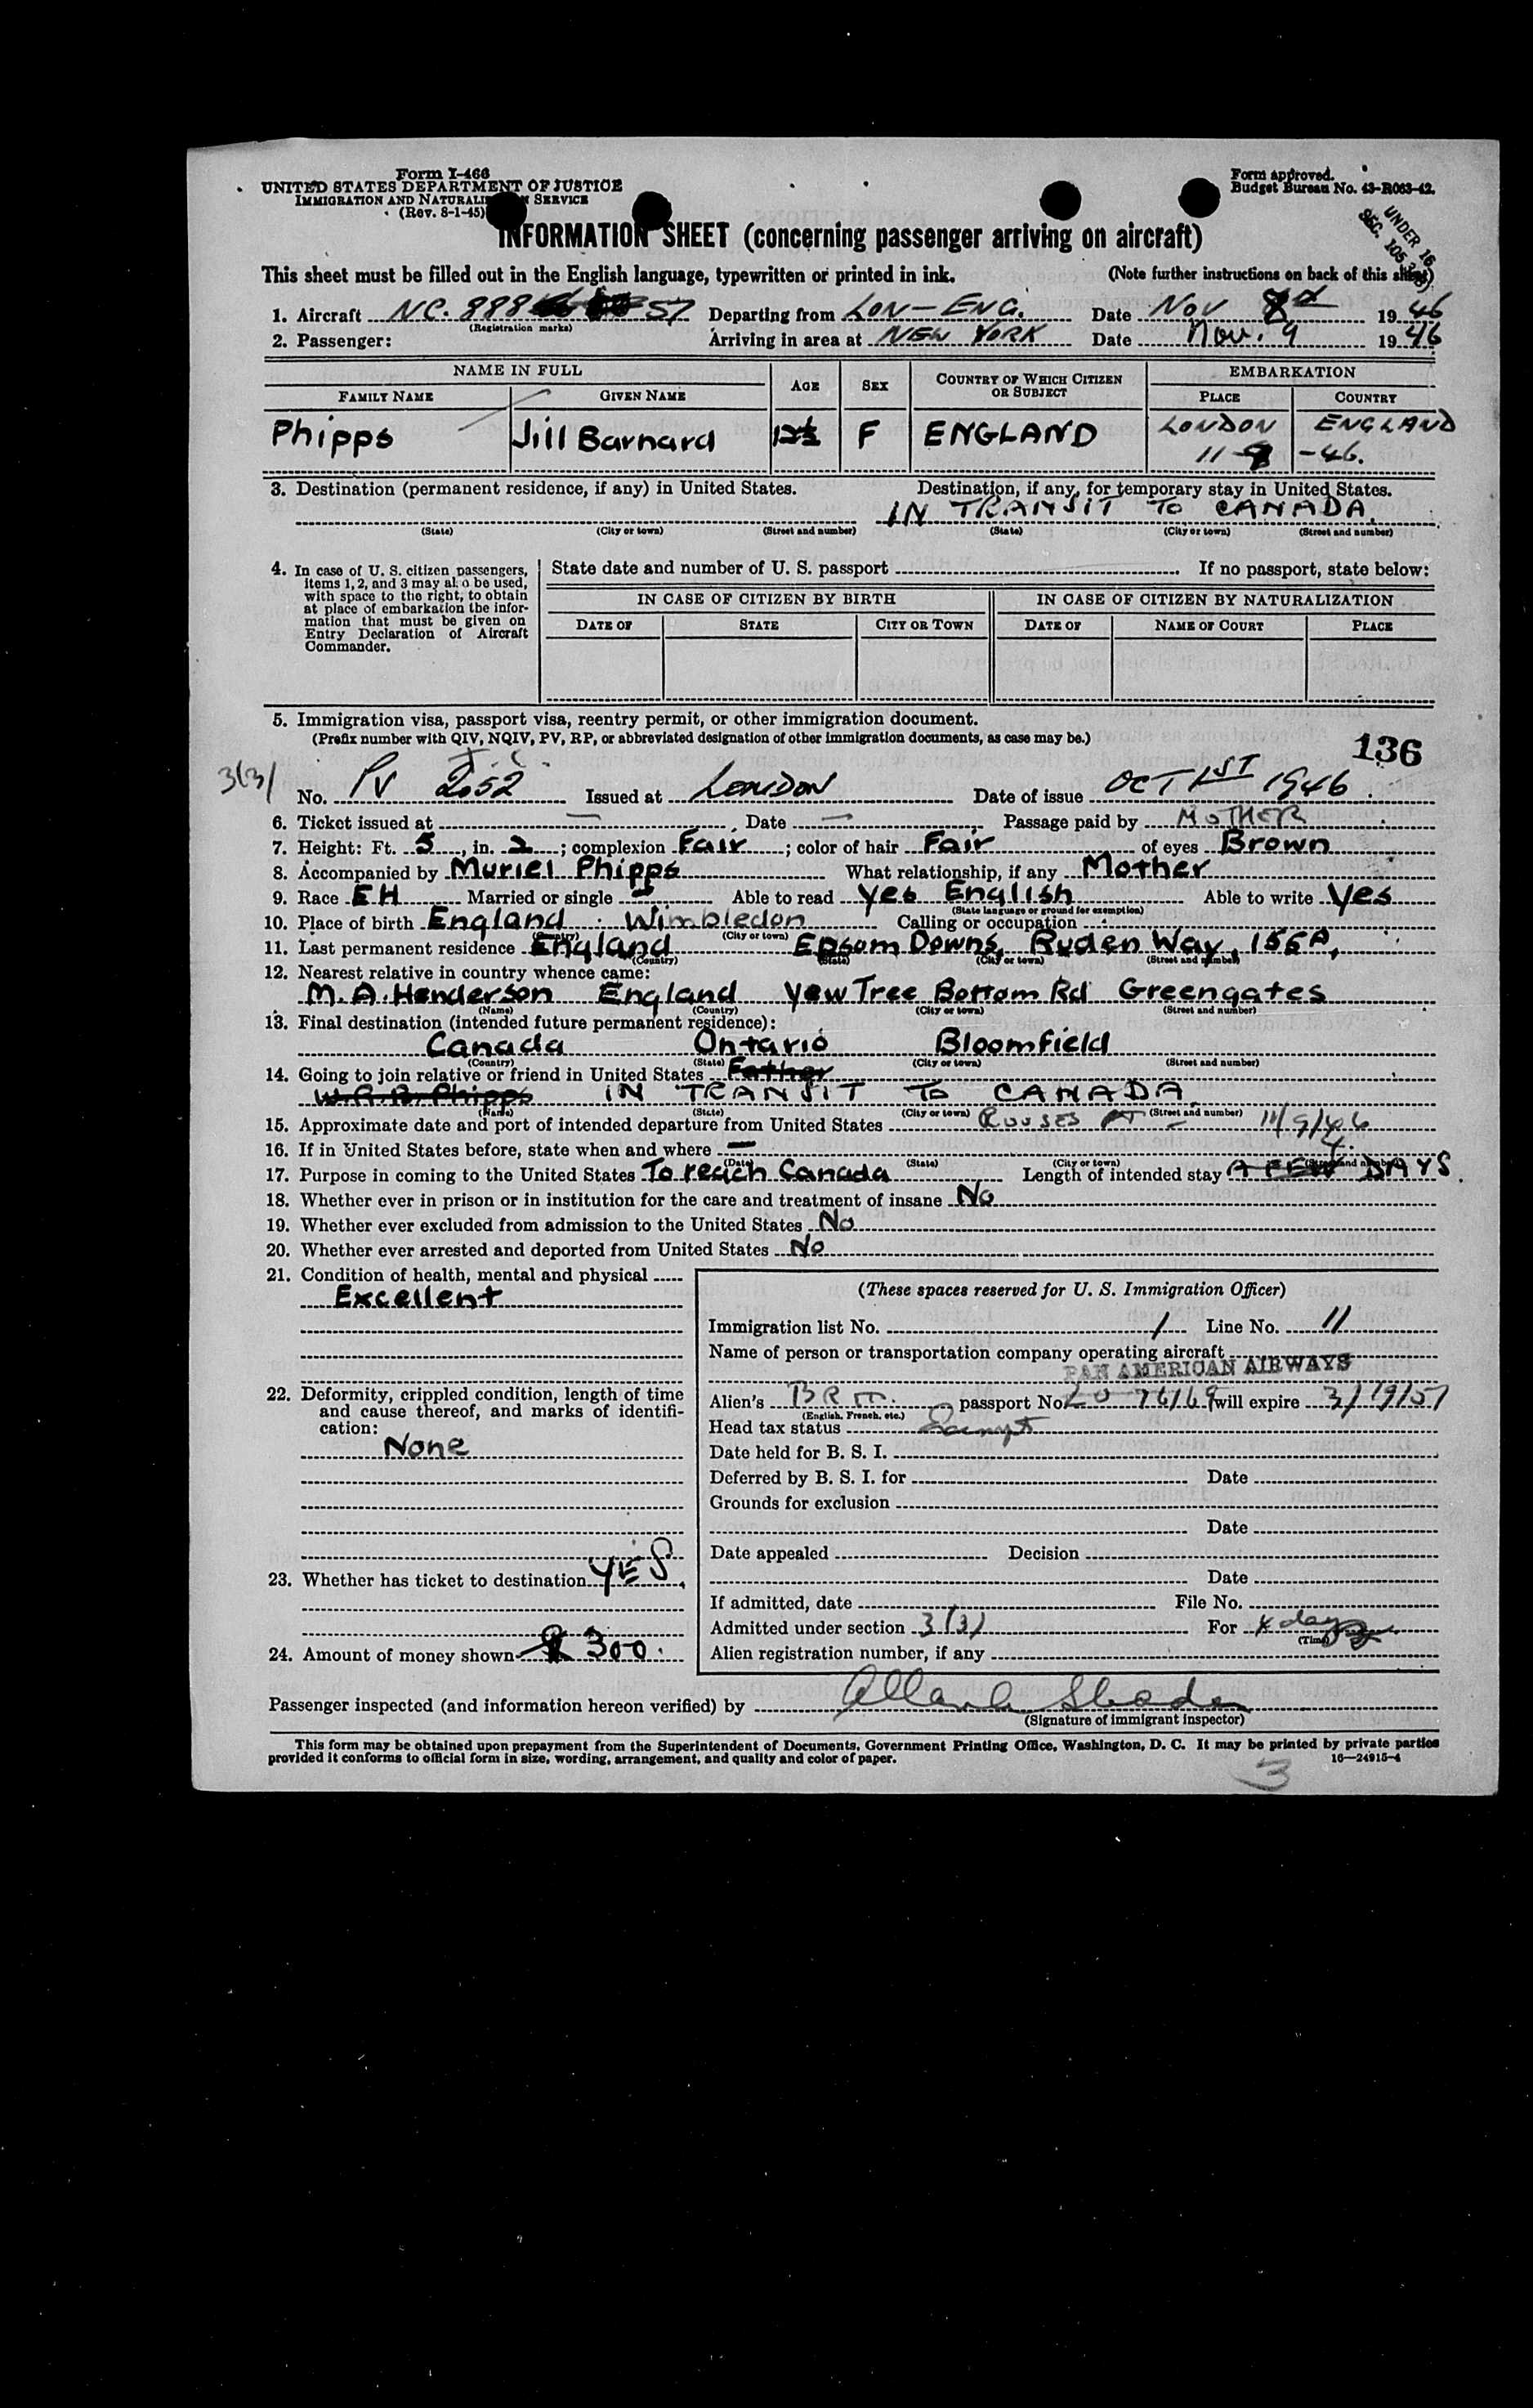 Form I-466
UNITED STATES DEPARTMENT OF JUSTICE
IMMIGRATION AND NATURALIZATION SERVICE
(Rev. 8-1-45)
Form approved.
Budget Bureau No. 43-R063-42.
UNDER 16
SEC. 105
INFORMATION SHEET (concerning passenger arriving on aircraft)
This sheet must be filled out in the English language, typewritten or printed in ink. (Note further instructions on back of this sheet)
1. Aircraft NC. 888 57 Departing from LON-ENG. Date NOV 8 1946
(Registration marks)
2. Passenger: Arriving in area at NEW YORK Date Nov. 9 1946
NAME IN FULL AGE SEX COUNTRY OF WHICH CITIZEN OR SUBJECT EMBARKATION
FAMILY NAME GIVEN NAME PLACE COUNTRY
Phipps Jill Barnard F ENGLAND LONDON ENGLAND
11-8 -46.
3. Destination (permanent residence, if any) in United States. Destination, if any, for temporary stay in United States.
IN TRANSIT TO CANADA.
(State) (City or town) (Street and number) (State) (City or town) (Street and number)
4. In case of U. S. citizen passengers, items 1, 2, and 3 may also be used, with space to the right, to obtain at place of embarkation the information that must be given on Entry Declaration of Aircraft Commander.
State date and number of U. S. passport If no passport, state below:
IN CASE OF CITIZEN BY BIRTH IN CASE OF CITIZEN BY NATURALIZATION
DATE OF STATE CITY OR TOWN DATE OF NAME OF COURT PLACE
5. Immigration visa, passport visa, reentry permit, or other immigration document.
(Prefix number with QIV, NQIV, PV, RP, or abbreviated designation of other immigration documents, as case may be.)
136
3(3)
No. PV 2052 Issued at LONDON Date of issue OCT 1ST 1946
6. Ticket issued at — Date — Passage paid by MOTHER
7. Height: Ft. 5, in. 2; complexion Fair; color of hair Fair of eyes Brown
8. Accompanied by Muriel Phipps What relationship, if any Mother
9. Race EH Married or single S Able to read Yes English Able to write Yes
(State language or ground for exemption)
10. Place of birth England Wimbledon Calling or occupation
(Country) (City or town)
11. Last permanent residence England Epsom Downs, Ruden Way, 156A,
(Country) (State) (City or town) (Street and number)
12. Nearest relative in country whence came:
M. A. Henderson England Yew Tree Bottom Rd Greengates
(Name) (Country) (City or town) (Street and number)
13. Final destination (intended future permanent residence):
Canada Ontario Bloomfield
(Country) (State) (City or town) (Street and number)
14. Going to join relative or friend in United States Father
Phipps IN TRANSIT TO CANADA.
(Name) (State) (City or town) (Street and number)
15. Approximate date and port of intended departure from United States ROUSES PT - 11/9/46
16. If in United States before, state when and where —
(Date) (State) (City or town) (Street and number)
17. Purpose in coming to the United States To reach Canada Length of intended stay A FEW DAYS.
18. Whether ever in prison or in institution for the care and treatment of insane No
19. Whether ever excluded from admission to the United States No
20. Whether ever arrested and deported from United States No
21. Condition of health, mental and physical
Excellent
22. Deformity, crippled condition, length of time and cause thereof, and marks of identification:
None
23. Whether has ticket to destination YES
24. Amount of money shown $ 300.
(These spaces reserved for U. S. Immigration Officer)
Immigration list No. 1 Line No. 11
Name of person or transportation company operating aircraft
PAN AMERICAN AIRWAYS
Alien's BRIT. passport No. will expire 3/19/51
(English, French, etc.)
Head tax status Exempt
Date held for B. S. I.
Deferred by B. S. I. for Date
Grounds for exclusion
Date
Date appealed Decision
Date
If admitted, date File No.
Admitted under section 3(3) For 4 days
(Time)
Alien registration number, if any
Passenger inspected (and information hereon verified) by
(Signature of immigrant inspector)
This form may be obtained upon prepayment from the Superintendent of Documents, Government Printing Office, Washington, D. C. It may be printed by private parties
provided it conforms to official form in size, wording, arrangement, and quality and color of paper. 16—24915-4
3